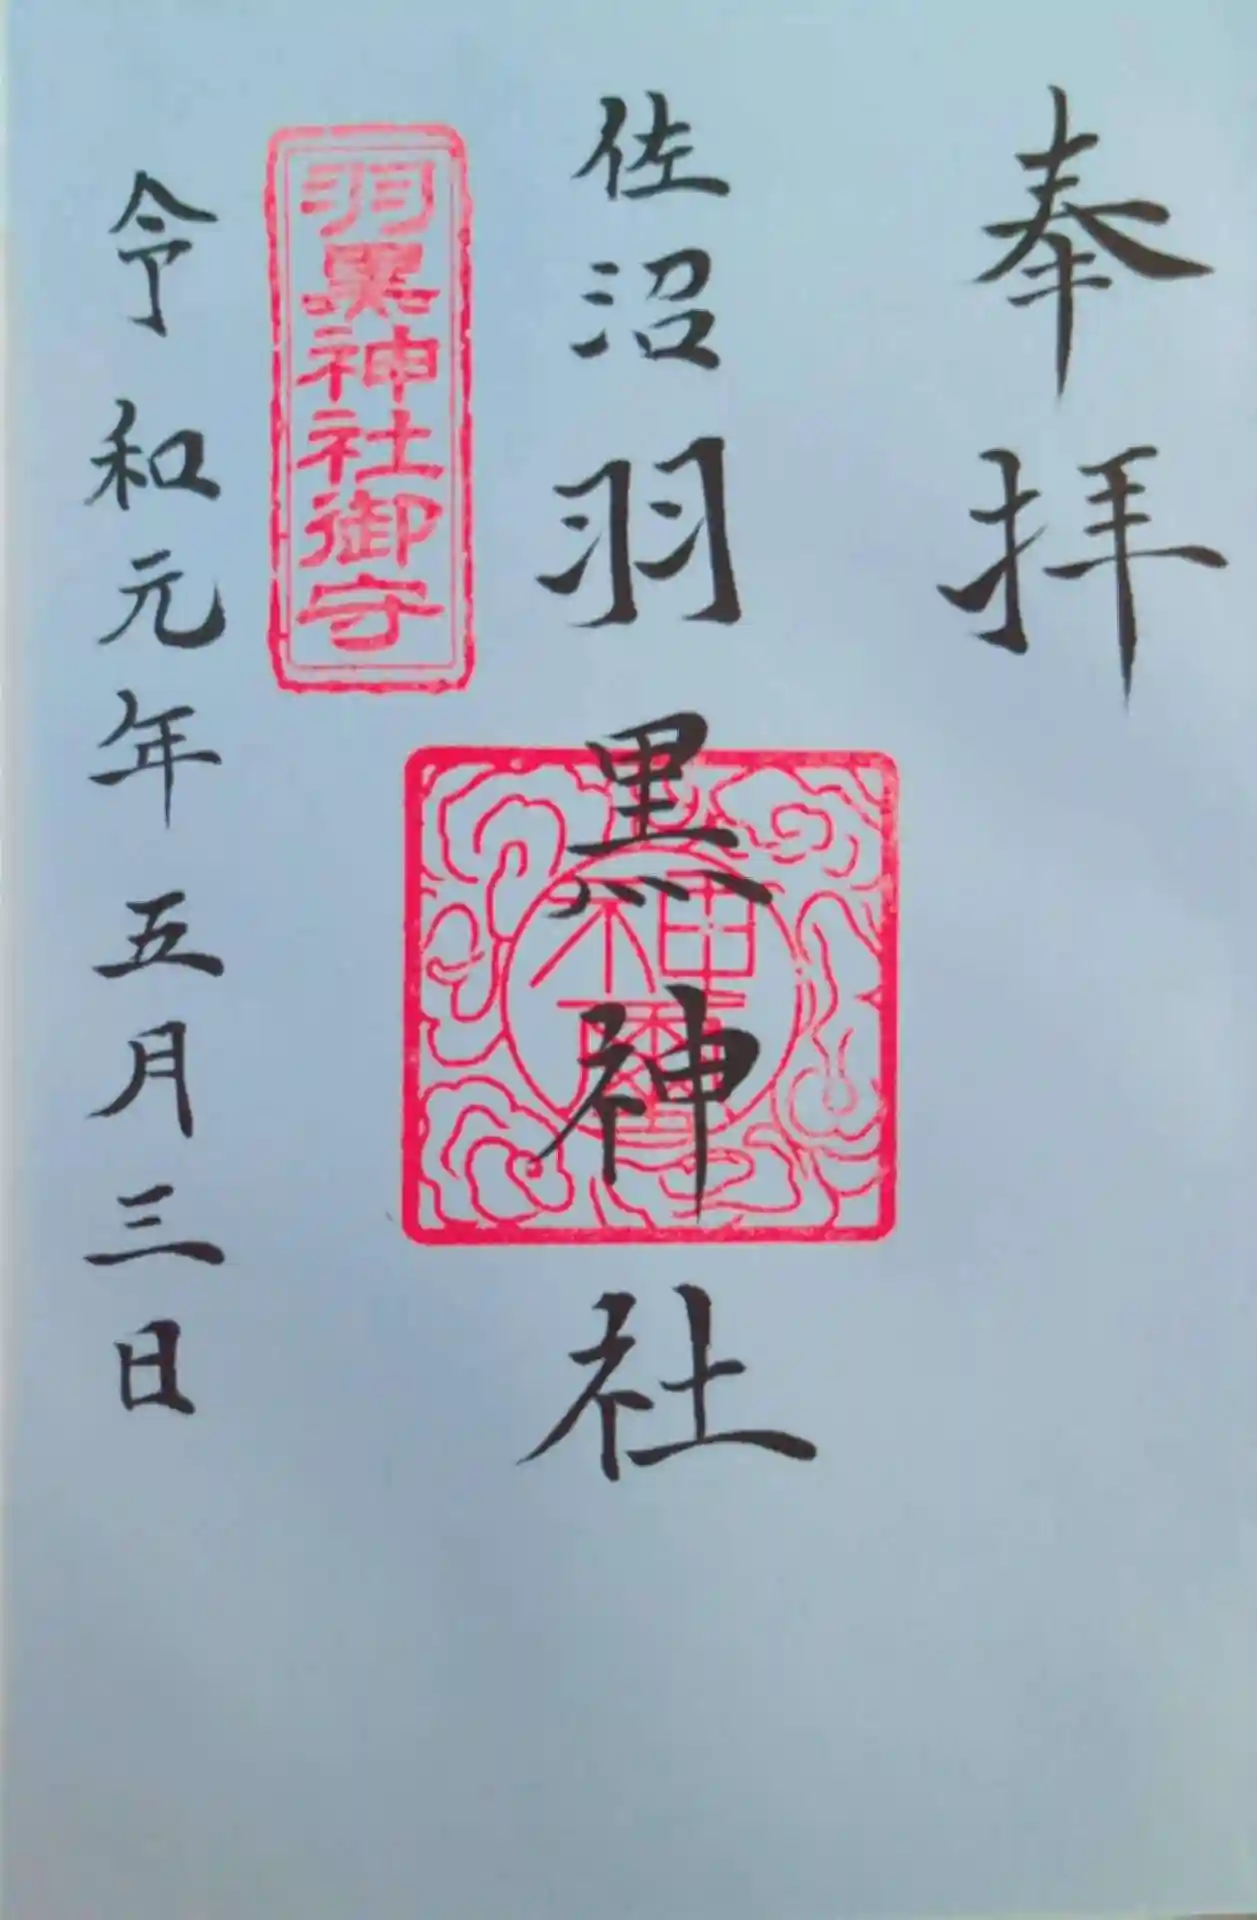 奉拝
佐沼羽黒神社
神璽
羽黒神社御守
令和元年五月三日